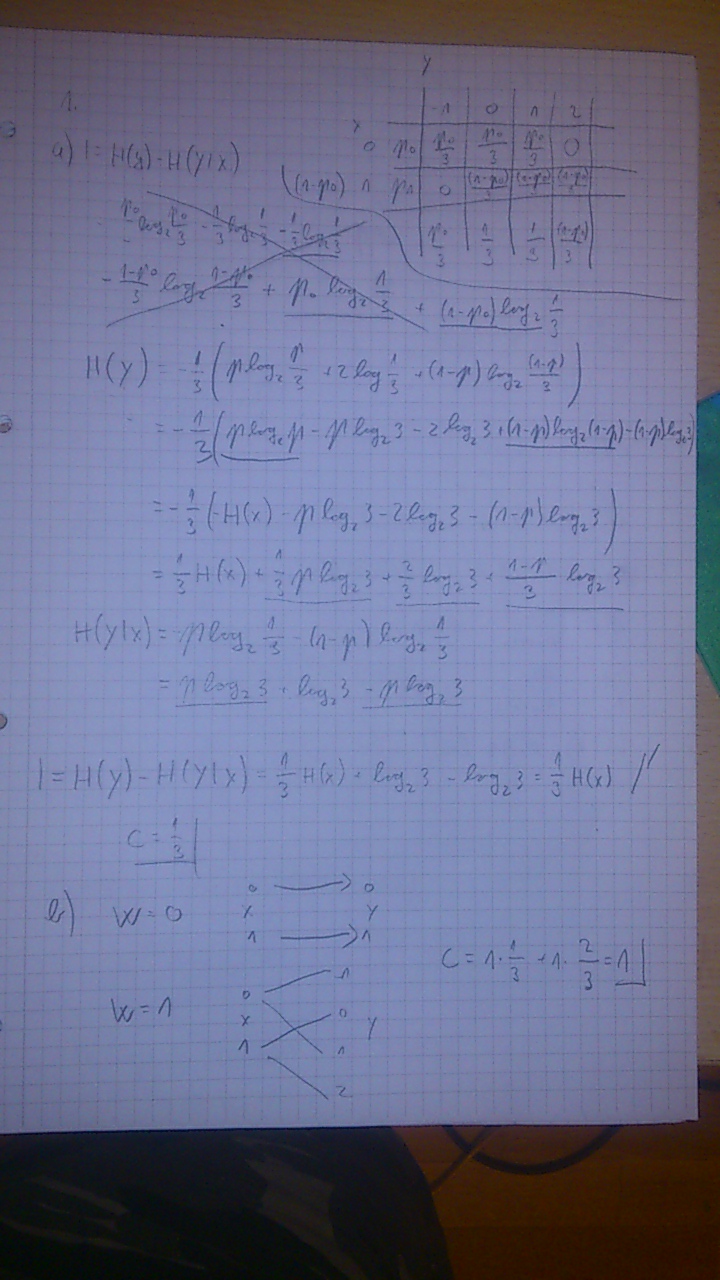 1.
Y
-1 0 1 2
X
0 p₀ p₀/3 p₀/3 p₀/3 0
(1-p₀) 1 p₁ 0 (1-p₀)/3 (1-p₀)/3 (1-p₀)/3
p₀/3 1/3 1/3 (1-p₀)/3
a) I = H(y) - H(Y|X)
p₀ log₂ p₀/3 - 1/3 log₂ 1/3 - 1/3 log₂ 1/3
- (1-p₀)/3 log₂ (1-p₀)/3 + p₀ log₂ 1/3 + (1-p₀) log₂ 1/3
H(Y) = -1/3 (p log₂ p/3 + 2 log 1/3 + (1-p) log₂ (1-p)/3)
= -1/3 (p log₂ p - p log₂ 3 - 2 log₂ 3 + (1-p) log₂ (1-p) - (1-p) log₂ 3)
= -1/3 (-H(x) - p log₂ 3 - 2 log₂ 3 - (1-p) log₂ 3)
= 1/3 H(x) + 1/3 p log₂ 3 + 2/3 log₂ 3 + (1-p)/3 log₂ 3
H(Y|X) = -p log₂ 1/3 - (1-p) log₂ 1/3
= p log₂ 3 + log₂ 3 - p log₂ 3
I = H(Y) - H(Y|X) = 1/3 H(x) + log₂ 3 - log₂ 3 = 1/3 H(x) //
C = 1/3
b) W = 0
0 → 0
X Y
1 → 1
C = 1 · 1/3 + 1 · 2/3 = 1
W = 1
-1
0
0
X Y
1
1
2